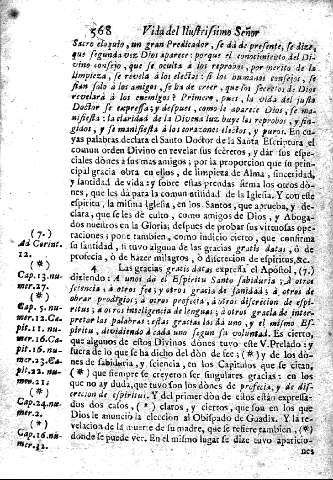 568 Vida del Ilustrissimo Señor
Sacro eloquio, un gran Predicador, se dà de presente, se dize,
que segunda vez Dios aparece: porque el conocimiento del Di-
vino consejo, que se oculta à los reprobos, por merito de la
limpieza, se revela à los electos: si los humanos consejos, se
fian solo à los amigos, se ha de creer, que los secretos de Dios
revelarà à los enemigos? Primero, pues, la vida del justo
Doctor se expressa; y despues, como le aparece Dios, se ma-
nifiesta: la claridad de la Divina luz huye los reprobos, y fin-
gidos, y se manifiesta à los corazones electos, y puros. En cu-
yas palabras declara el Santo Doctor de la Santa Escriptura el
comun orden Divino en revelar sus secretos, y dàr sus espe-
ciales dones à sus mas amigos; por la proporcion que su prin-
cipal gracia obra en ellos, de limpieza de Alma, sinceridad,
y santidad de vida y sobre estas prendas sienta los otros do-
nes, que les dà para la comun utilidad de la Iglesia. Y con este
espiritu, la misma Iglesia, en los Santos, que aprueba, y de-
clara, que se les dè culto, como amigos de Dios, y Aboga-
dos nuestros en la Gloria; despues de probar sus virtuosas ope-
raciones; pone tambien, como indicio cierto, que confirma
su santidad, si tuvo alguna de las gracias gratis datas, ò de
profecia, ò de hazer milagros, ò discrecion de espiritus, &c.
4 Las gracias gratis datas expressa el Apostol, (7.)
diziendo: A unos dà el Espiritu Santo sabiduria; à otros
sciencia; à otros fee; y otros gracia de sanidad; à otros de
obrar prodigios; à otros profecia; à otros discrecion de espi-
ritus; à otros inteligencia de lenguas; à otros gracia de inter-
pretar las palabras: estas gracias las dà uno, y el mismo Es-
piritu, dividiendo à cada uno segun su voluntad. Es cierto,
que algunos de estos Divinos dones tuvo este V. Prelado: y
fuera de lo que se ha dicho del dòn de fee; (*) y de los dò-
nes de sabiduria, y sciencia, en los Capitulos que se citan,
(*) que siempre se creyeron ser singulares gracias: en los
que no ay duda, que tuvo son los dones de profecia, y de dis-
crecion de espiritus. Y del primer dòn de estos estàn expressa-
dos dos casos, (*) claros, y ciertos, que son en los que
Dios le anunciò la eleccion al Obispado de Guadix. Y la re-
velacion de la muerte de su madre, que se refiere tambien, (*)
donde se puede vèr. En el mismo lugar se dize tuvo aparicio-
nes
(7.)
Ad Corint.
12.
(*)
Cap.13. nu-
mer.27.
(*)
Cap.5. nu-
mer.12. Ca-
pit.11. nu-
mer.16. Ca-
pit.16. nu-
mer.23. Ca-
pit.22. nu-
mer.21.
(*)
Cap.24. nu-
mer.2.
(*)
Cap.16. nu-
mer.12.